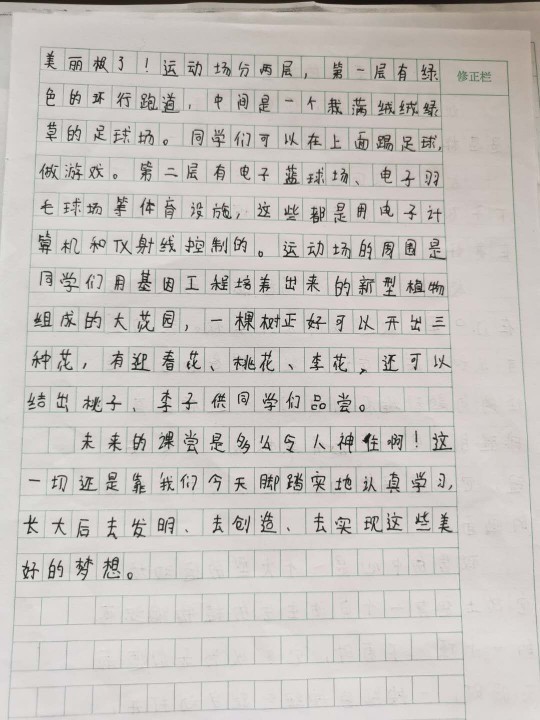 美丽极了！运动场分两层，第一层有绿
修正栏
色的环行跑道，中间是一个栽满绒绒绿
草的足球场。同学们可以在上面踢足球，
做游戏。第二层有电子蓝球场、电子羽
毛球场等体育设施，这些都是用电子计
算机和TX射线控制的。运动场的周围是
同学们用基因工程培养出来的新型植物
组成的大花园，一棵树正好可以开出三
种花，有迎春花、桃花、李花，还可以
结出桃子、李子供同学们品尝。
未来的课堂是多么令人神往啊！这
一切还是靠我们今天脚踏实地认真学习，
长大后去发明、去创造、去实现这些美
好的梦想。